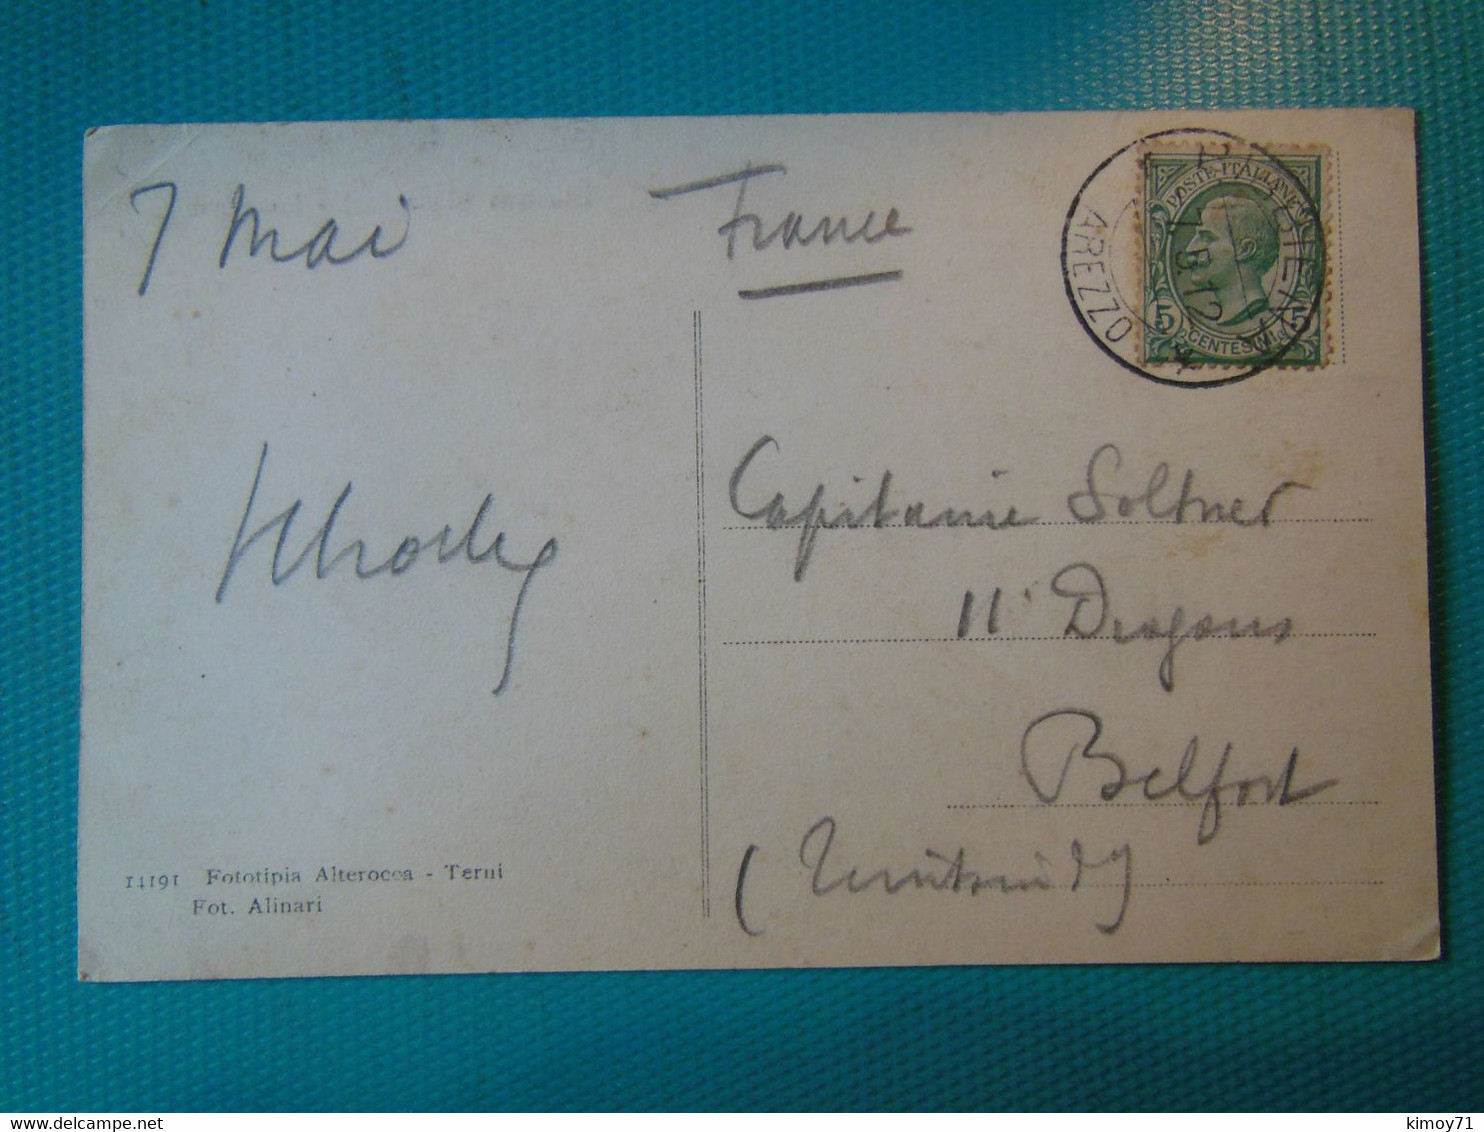 7 Mai
France
POSTE ITALIANE
5 CENTESIMI 5
BIBBIENA
7.5.12
AREZZO
Capitaine Soltner
11e Dragons
Belfort
(Territoire d
14191 Fototipia Alterocca - Terni
Fot. Alinari
kimoy71